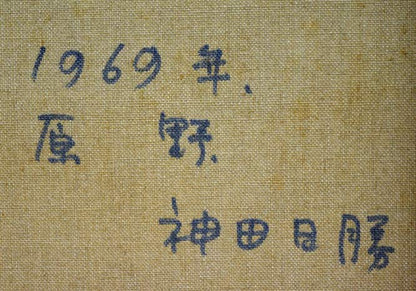 1969年.
原 野.
神田日勝